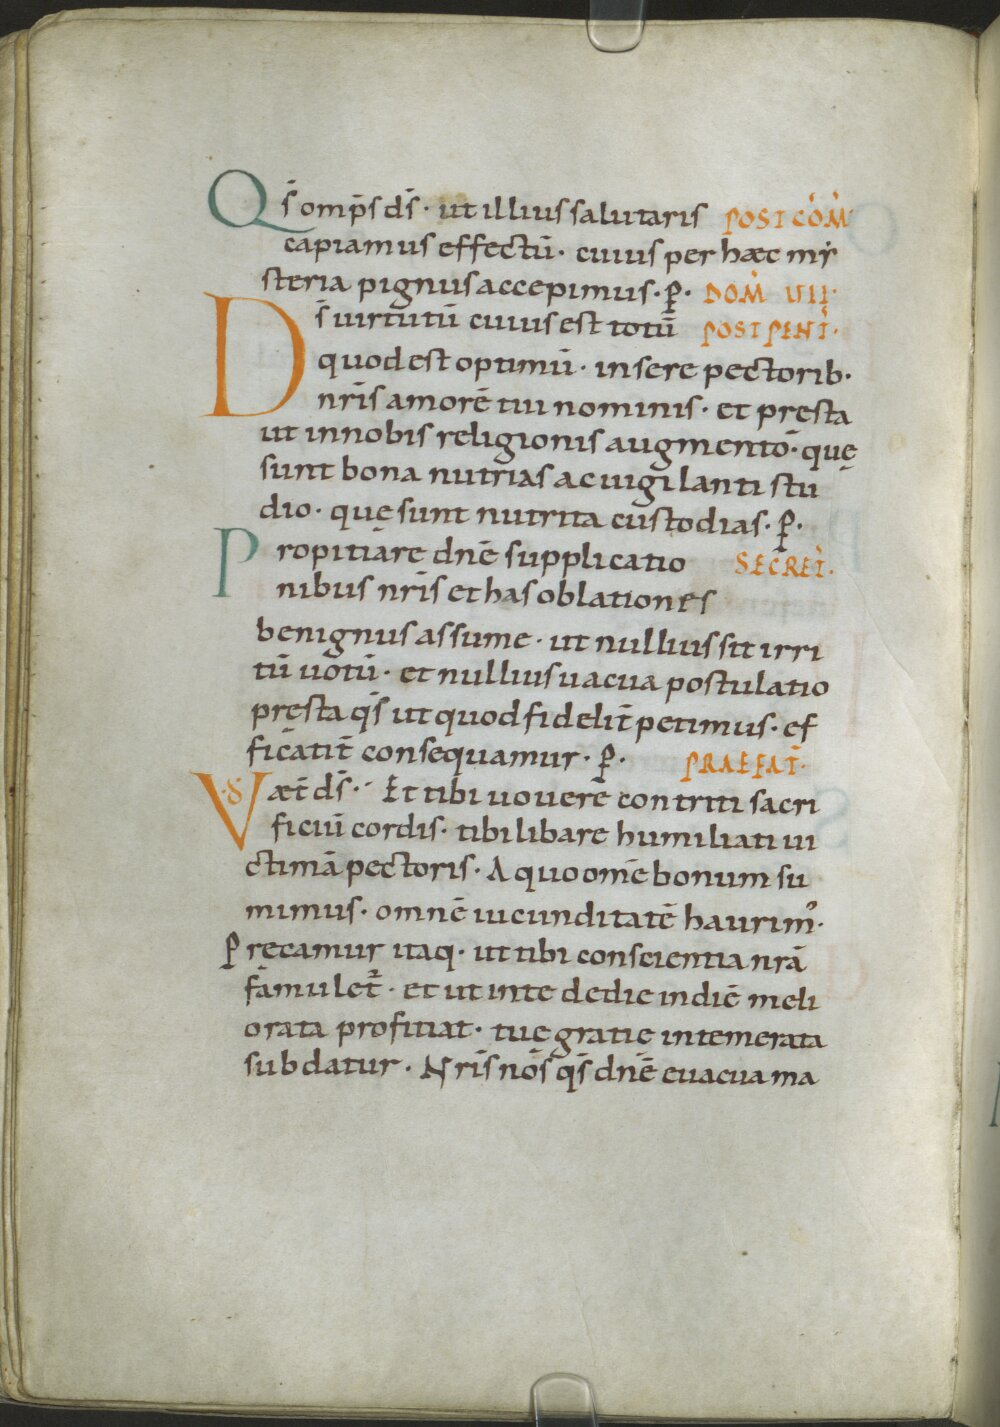 Qs̄ omp̄s ds̄· ut illius salutaris POST COM̄
capiamus effectū· cuius per hæc my
steria pignus accepimus· P̄· DOM̄ VII·
Ds̄ uirtutū cuius est totū POST PENT̄·
quod est optimū· insere pectorib·
nr̄is amorē tui nominis· et presta
ut in nobis religionis augmentō· quę
sunt bona nutrias ac uigilanti stu
dio· quę sunt nutrita custodias· P̄·
Propitiare dnē supplicatio SECRET̄·
nibus nr̄is et has oblationes
benignus assume· ut nullius sit irri
tū uotū· et nullius uacua postulatio
presta qs̄ ut quod fidelit̄ petimus· ef
ficatit̄ consequamur· P̄· PRAEFAT̄·
V·D· æt̄ ds̄· Et tibi uouere contriti sacri
ficiū cordis· tibi libare humiliati ui
ctimā pectoris· A quo om̄e bonum su
mimus· omnē iucunditatē haurim᾽·
Precamur itaq· ut tibi conscientia nr̄a
famulet̄· et ut in te de die in diē meli
orata profitiat· tuę gratię intemerata
subdatur· Nr̄is nos̄ qs̄ dnē euacua ma